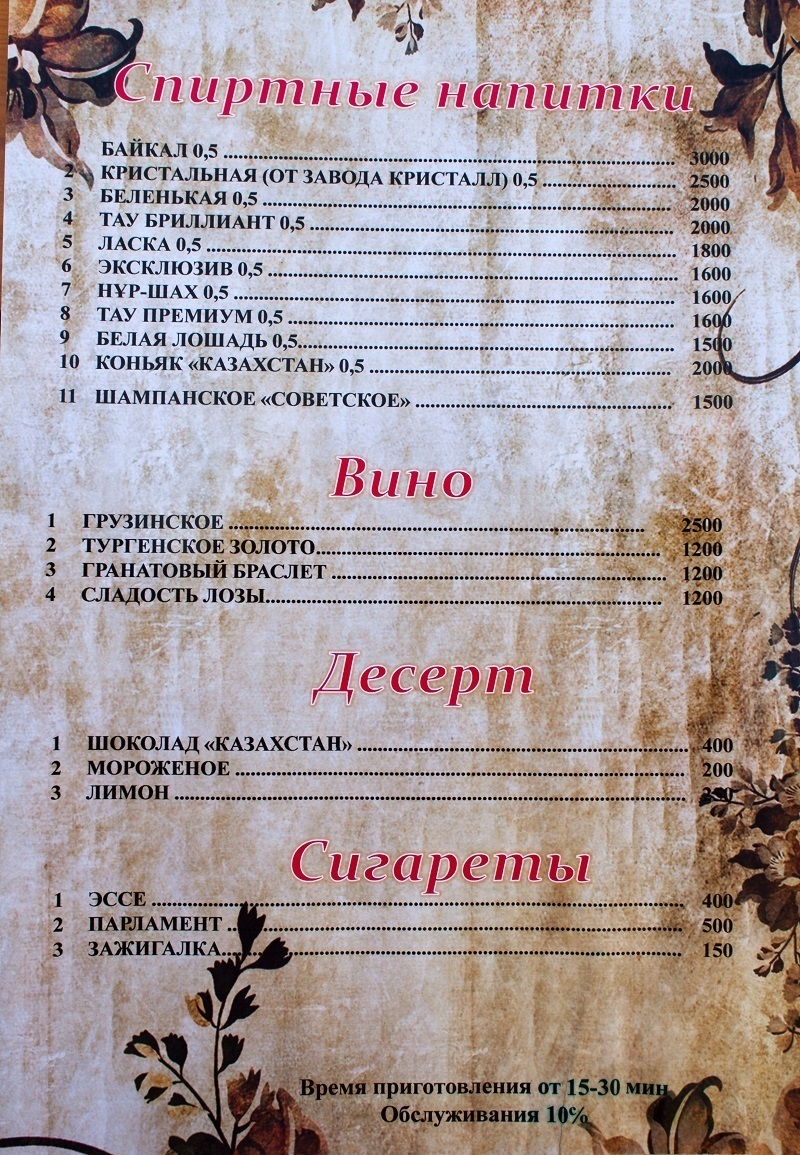 Спиртные напитки
1 БАЙКАЛ 0,5 ........ 3000
2 КРИСТАЛЬНАЯ (ОТ ЗАВОДА КРИСТАЛЛ) 0,5 ........ 2500
3 БЕЛЕНЬКАЯ 0,5 ........ 2000
4 ТАУ БРИЛЛИАНТ 0,5 ........ 2000
5 ЛАСКА 0,5 ........ 1800
6 ЭКСКЛЮЗИВ 0,5 ........ 1600
7 НҰР-ШАХ 0,5 ........ 1600
8 ТАУ ПРЕМИУМ 0,5 ........ 1600
9 БЕЛАЯ ЛОШАДЬ 0,5........ 1500
10 КОНЬЯК «КАЗАХСТАН» 0,5 ........ 2000
11 ШАМПАНСКОЕ «СОВЕТСКОЕ» ........ 1500
Вино
1 ГРУЗИНСКОЕ ........ 2500
2 ТУРГЕНСКОЕ ЗОЛОТО........ 1200
3 ГРАНАТОВЫЙ БРАСЛЕТ ........ 1200
4 СЛАДОСТЬ ЛОЗЫ........ 1200
Десерт
1 ШОКОЛАД «КАЗАХСТАН» ........ 400
2 МОРОЖЕНОЕ ........ 200
3 ЛИМОН ........
Сигареты
1 ЭССЕ ........ 400
2 ПАРЛАМЕНТ ........ 500
3 ЗАЖИГАЛКА........ 150
Время приготовления от 15-30 мин
Обслуживания 10%